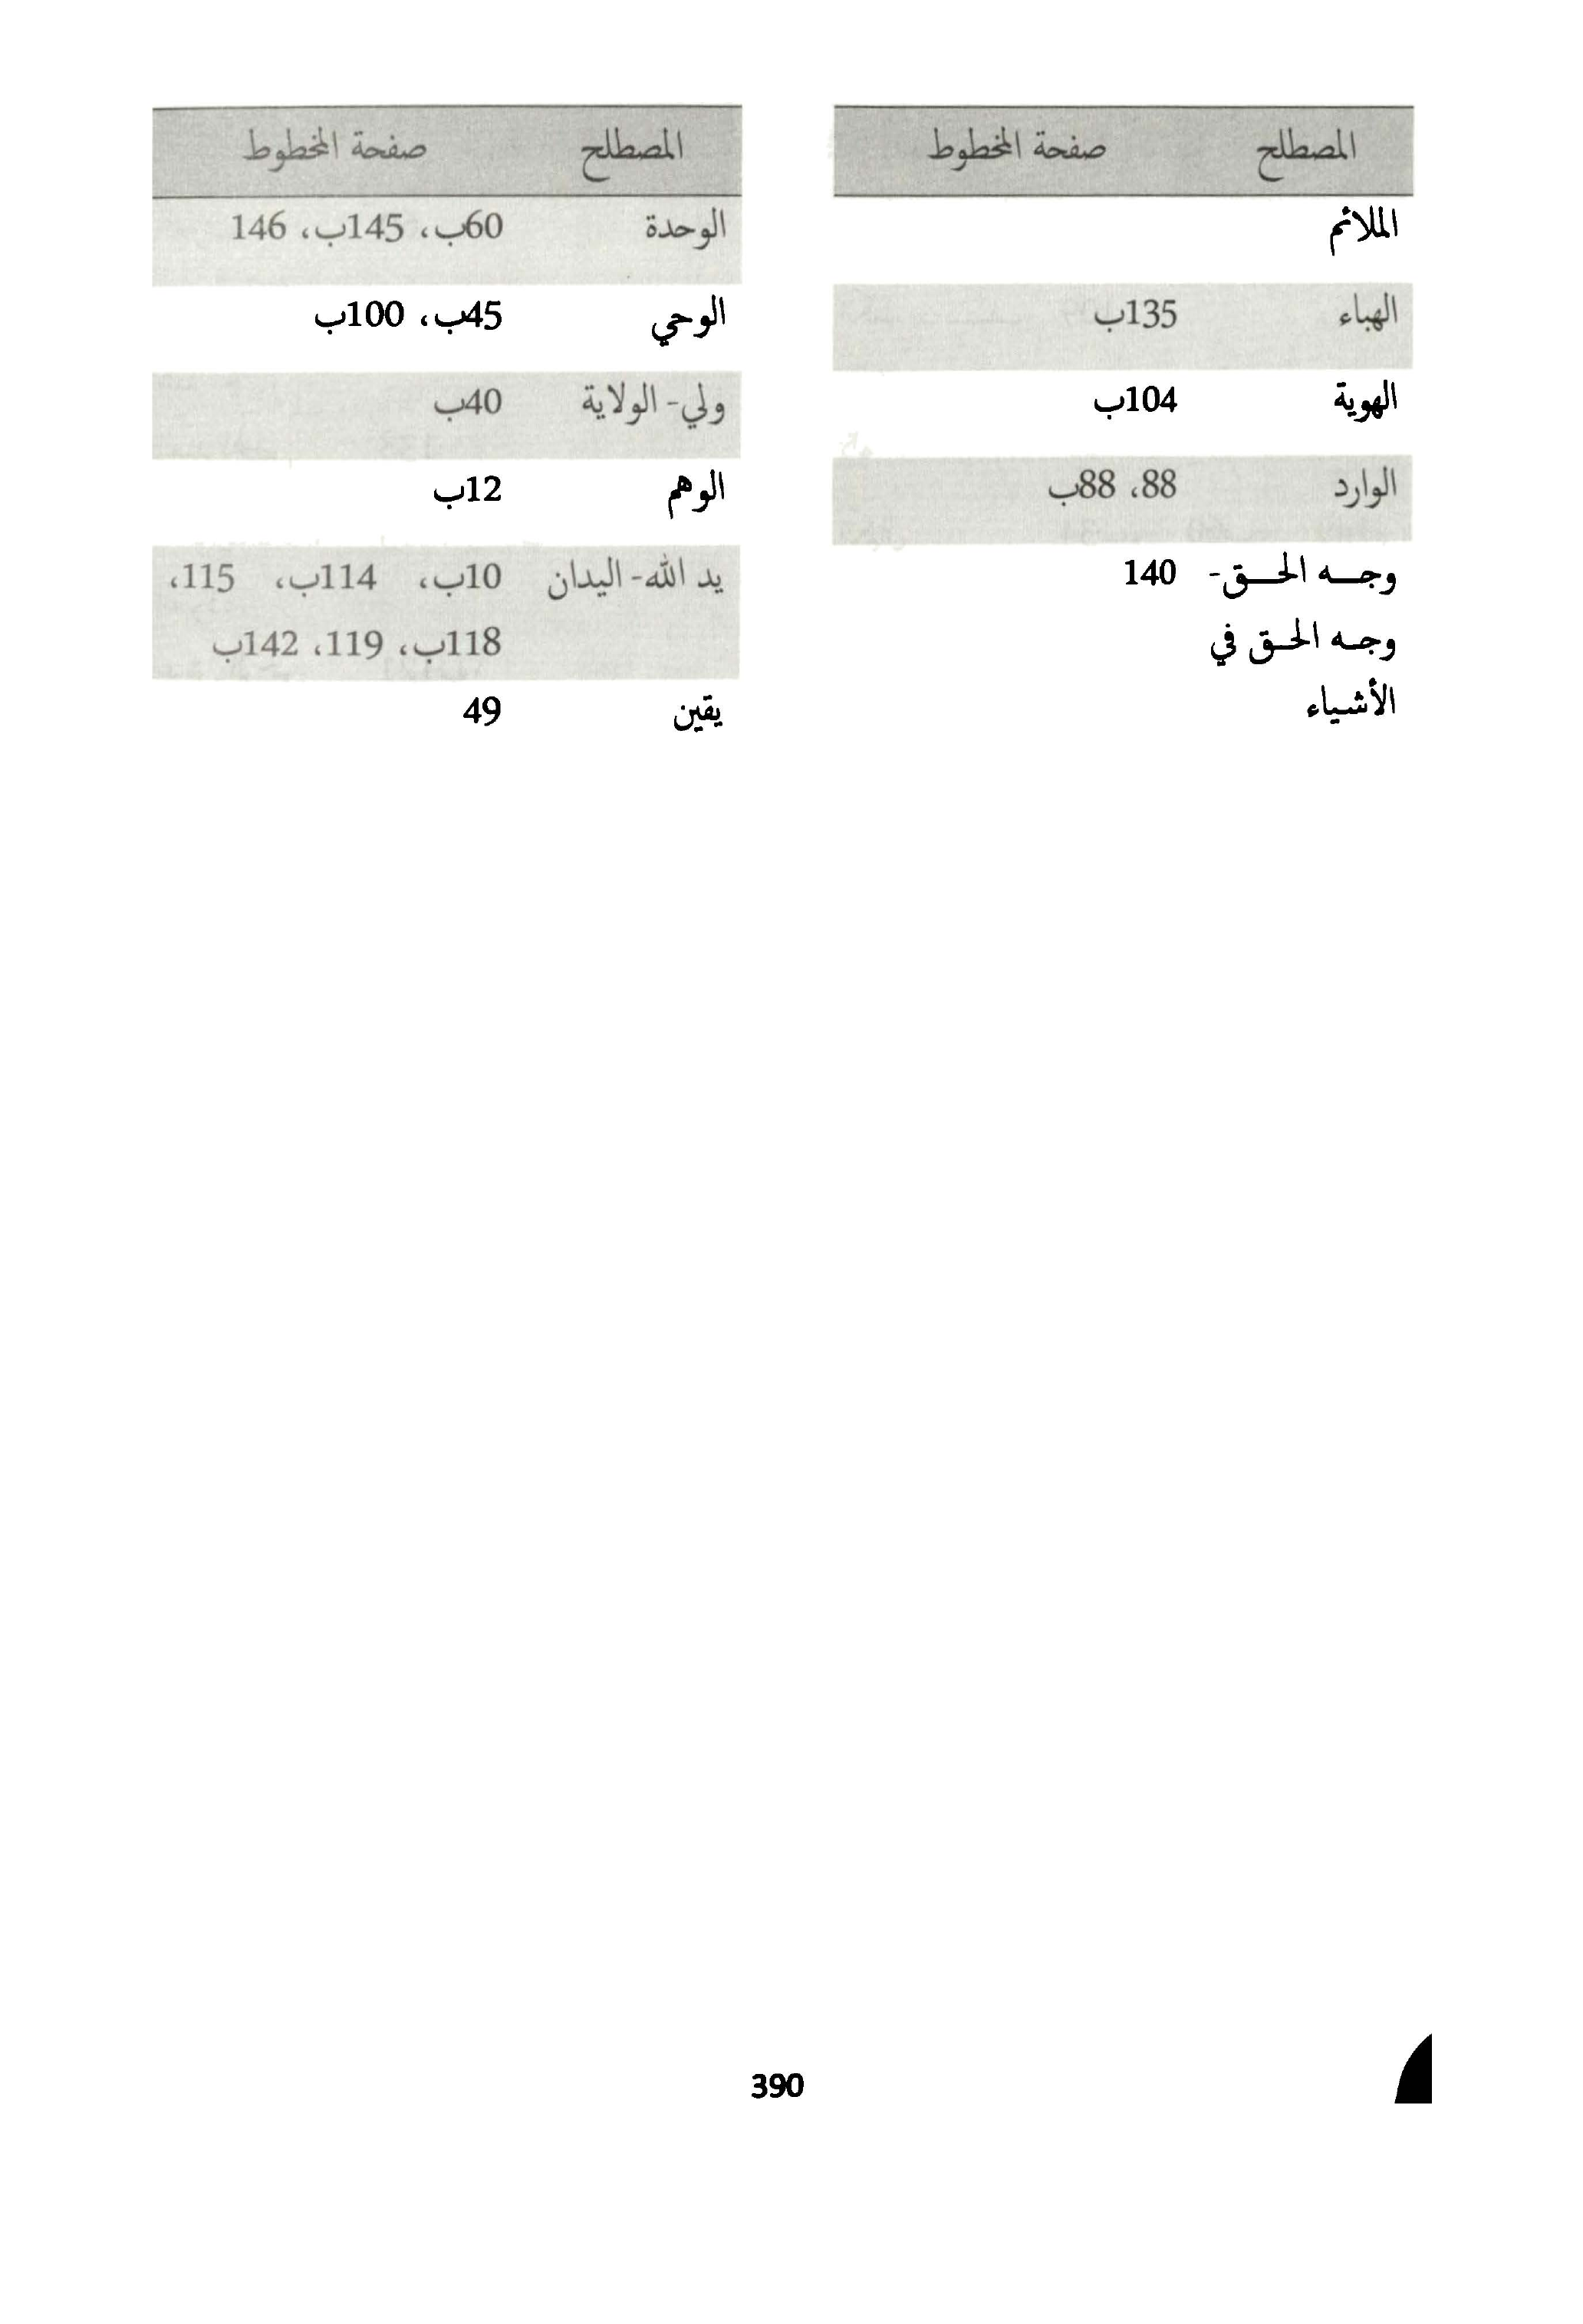 المصطلح صفحة المخطوط
الملائم
الهباء 135ب
الهوية 104ب
الوارد 88، 88ب
وجه الحق- 140
وجه الحق في
الأشياء
المصطلح صفحة المخطوط
الوحدة 60ب، 145ب، 146
الوحي 45ب، 100ب
ولي- الولاية 40ب
الوهم 12ب
يد الله- اليدان 10ب، 114ب، 115،
118ب، 119، 142ب
يقين 49
390